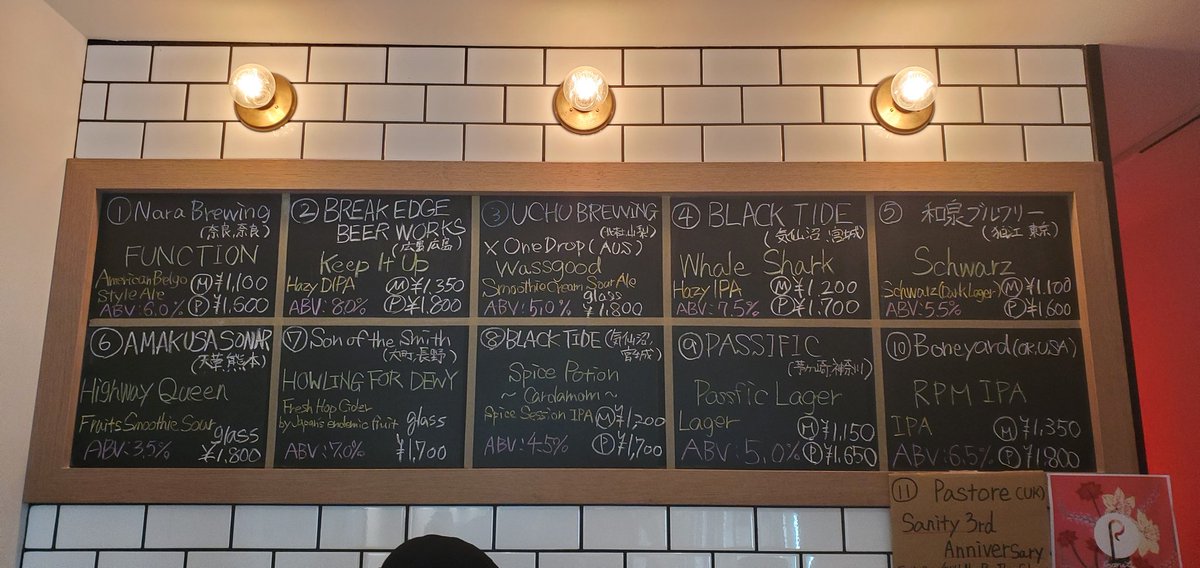 ① Nara Brewing
(奈良,奈良)
FUNCTION
American Belgo
Style Ale
Ⓜ ¥1,100
ABV:6.0% Ⓟ ¥1,600
② BREAK EDGE
BEER WORKS
(広島,広島)
Keep It Up
Hazy DIPA Ⓜ ¥1,350
ABV:8.0% Ⓟ ¥1,800
③ UCHU BREWING
(北杜,山梨)
X One Drop (AUS)
Wassgood
Smoothie Cream Sour Ale
glass
ABV:5.0% ¥1,800
④ BLACK TIDE
(気仙沼,宮城)
Whale Shark
Hazy IPA Ⓜ ¥1200
ABV:7.5% Ⓟ ¥1,700
⑤ 和泉ブルフリー
(狛江,東京)
Schwarz
Schwarz(Dark Lager) Ⓜ ¥1,100
ABV:5.5% Ⓟ ¥1600
⑥ AMAKUSA SONAR
(天草,熊本)
Highway Queen
Fruits Smoothie Sour
glass
ABV:3.5% ¥1,800
⑦ Son of the Smith
(大町,長野)
HOWLING FOR DENY
Fresh Hop Cider
by Japan's endemic fruit glass
ABV:7.0% ¥1,700
⑧ BLACK TIDE (気仙沼,
宮城)
Spice Potion
~ Cardamom ~
Spice Session IPA Ⓜ ¥1,200
ABV:4.5% Ⓟ ¥1,700
⑨ PASSIFIC
(茅ヶ崎,神奈川)
Passific Lager
Lager Ⓜ ¥1,150
ABV:5.0% Ⓟ ¥1,650
⑩ Boneyard (OR,USA)
RPM IPA
IPA Ⓜ ¥1,350
ABV:6.5% Ⓟ ¥1,800
⑪ Pastore (UK)
Sanity 3rd
Anniversary